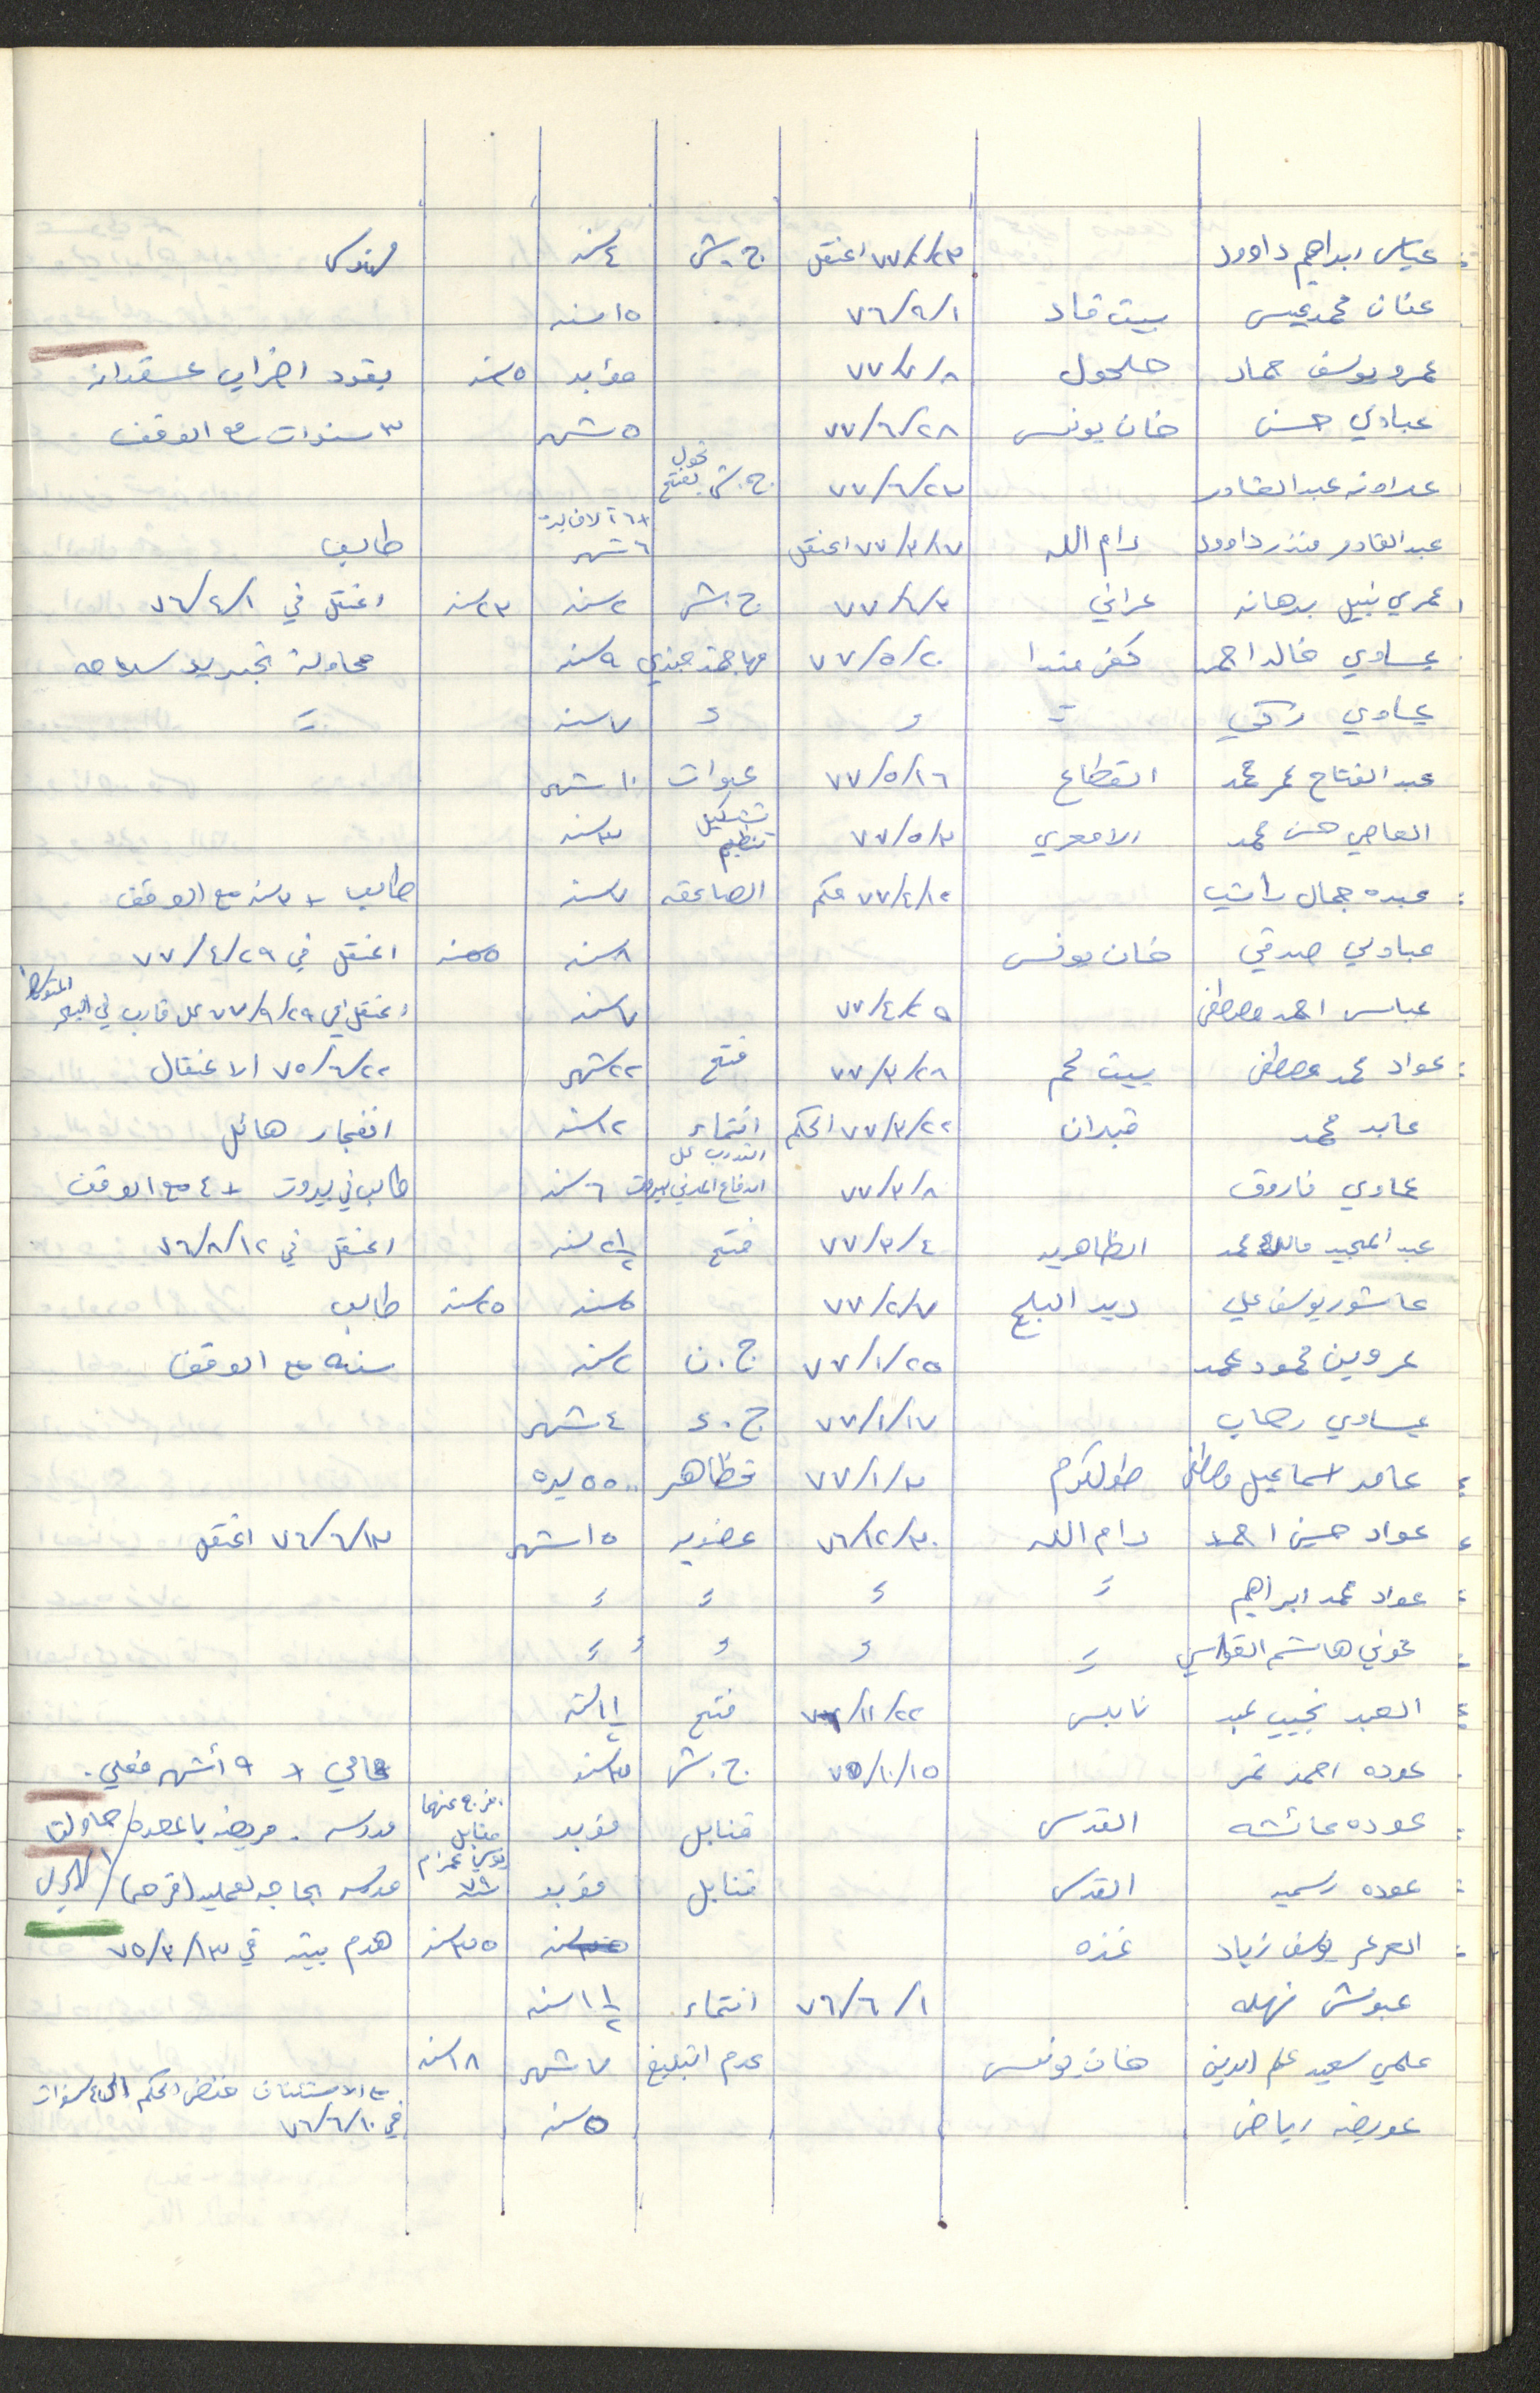 عباس ابراهيم داوود ٧٧/٦/٢٣ اعتقل ج.ش ٤ سنه مهندس
عنان محمد عيسى بيت قاد ٧٦/٩/١ ١٥ سنه
عمرو يوسف حماد حلحول ٧٧/٧/٨ مؤبد ٥ سنه يقود اضراب عسقلان
عبادي حسن خان يونس ٧٧/٦/٢٨ ٥ شهر ٣ سنوات مع الوقف
عبد القادر ٧٧/٦/٢٣ ج.ش تحول لفتح
عبد القادر منذر داوود رام الله ٧٧/٣/١٧ اعتقل ٦ شهر + ٦ آلاف ليرة طالب
عمري نبيل برهانه عراني ٧٧/٦/٣ ج.ش ٢ سنه ٢٣ سنه اعتقل في ٧٦/٤/١
عيساوي خالد احمد كفر مندا ٧٧/٥/٢٠ مهاجمة جندي ٩ سنه محاولة تجريد سلاحه
عيساوي زكي = " " ٧ سنه =
عبد الفتاح عمر محمد القطاع ٧٧/٥/١٦ عبوات ١٠ شهر
العاصي حسن محمد الامعري ٧٧/٥/٣ تشكيل تنظيم ٣ سنه
عبده جمال راتب ٧٧/٤/١٢ حكم الصاعقه ٧ سنه طالب + ٣ سنه مع الوقف
عبادي صدقي خان يونس ٨ سنه ٥٥ سنه اعتقل في ٧٧/٤/٢٩
عباس احمد مصطفى ٧٧/٤/٢٩ ٧ سنه اعتقل في ٧٧/٩/٢٩ على قارب في البحر المتوسط
عواد محمد مصطفى بيت لحم ٧٧/٣/٢٨ فتح ٢٢ شهر ٧٥/٦/٢٢ الاعتقال
عابد محمد قبلان ٧٧/٣/٢٢ الحكم انتماء ١٢ سنه انفجار هائل
عماوي فاروق ٧٧/٣/٨ التدرب على الدفاع المدني بيروت ٦ سنه طالب في بيروت + ٤ مع الوقف
عبد المجيد مالك محمد الظاهريه ٧٧/٣/٤ فتح ٢ ١/٢ سنه اعتقل في ٧٦/٨/١٢
عاشور يوسف علي دير البلح ٧٧/٢/٧ ٥ سنه ٢٥ سنه طالب
عروين محمود محمد ٧٧/١/٢٥ ج.ن ٢ سنه سنه مع الوقف
عيساوي رحاب ٧٧/١/١٧ ج.د ٤ شهر
عامر اسماعيل مصطفى طولكرم ٧٧/١/٣ تظاهر ٥٥٠٠ ليره
عواد حسين احمد رام الله ٧٦/١٢/٣٠ عضويه ١٥ شهر ٧٦/٦/١٣ اعتقل
عواد محمد ابراهيم " " " "
عوني هاشم القواسمي = " " " =
العبد نجيب عبد نابلس ٧٦/١١/٢٢ فتح ١ ١/٢ سنه
عوده احمد نمر ٧٥/١٠/١٥ ج.ش ٣ سنه محامي + ٩ أشهر فعلي.
عوده عائشه القدس قنابل مؤبد افرج عنهما مقابل مدرسه. مريضه بالمعده / حاولتا
عوده رسميه القدس قنابل مؤبد ٧٩ مدرسه بحاجه لعمليه (قرحه) / الهرب
العرعر يوسف زياد غزه ٣٥ سنه هدم بيته في ٧٥/٣/١٣
عبوش نهله ٧٦/٦/١ انتماء ١ ١/٢ سنه
علمي سعيد علم الدين خان يونس عدم التبليغ ٧ شهر ١٨ سنه
عويضه رياض ٥ سنه مع الاستئناف خفض الحكم الى ٤ سنوات في ٧٦/٦/١٠